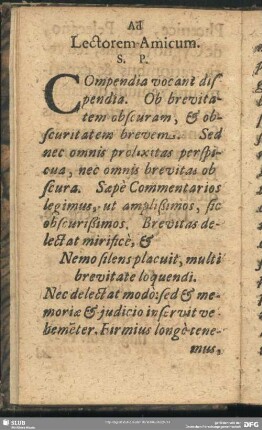 Ad
Lectorem Amicum.
S. P.
COmpendia vocant dis
pendia. Ob brevita-
tem obscuram, & ob-
scuritatem brevems. Sed
nec omnis prolixitas perspi-
cua, nec omnis brevitas ob
scura. Sæpè Commentarios
legimus, ut amplißimos, sic
obscurißimos. Brevitas de-
lectat mirificè, &
Nemo silens placuit, multi
brevitate loquendi.
Nec delectat modò: sed & me-
moriæ & judicio inservit ve-
hemẽter. Firmius longè tene-
mus,
SLUB
DFG